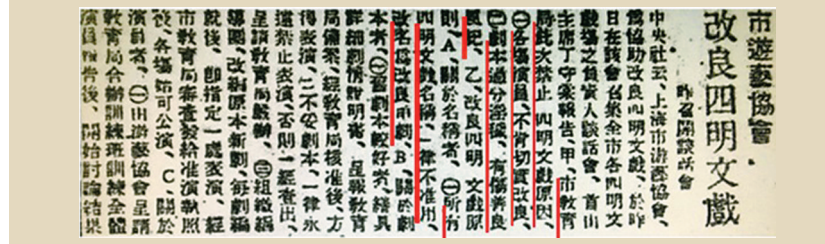 市遊藝協會
改良四明文戲
昨召開談話會
中央社云、上海市游藝協會、
爲協助改良四明文戲、於昨
日在該會召集全市各四明文
戲塲之負責人談話會、首由
主席丁守棠報告、甲、市教育
局此次禁止四明文戲原因、
㊀各塲演員、不肯切實改良、
㊁劇本過分淫穢、有傷善良
風紀、乙、改良四明文戲原
則、A、關於名稱者、㊀所有
四明文戲名稱、一律不准用、
改名爲改良甬劇、B、關於劇
本者、㊀舊劇本較好者、繕具
詳細劇情說明書、呈報教育
局備案、經教育局核准後、方
得表演、㊁不妥劇本、一律永
遠禁止表演、否則一經查出、
呈請教育局嚴辦、㊂組織編
導團、改編原本新劇、每劇編
就後、卽指定一處表演、經
市教育局審査發給准演執照
後、各塲始可公演、C、關於
演員者、㊀由游藝協會呈請
教育局合辦訓練班訓練全體
演員報告後、開始討論結果